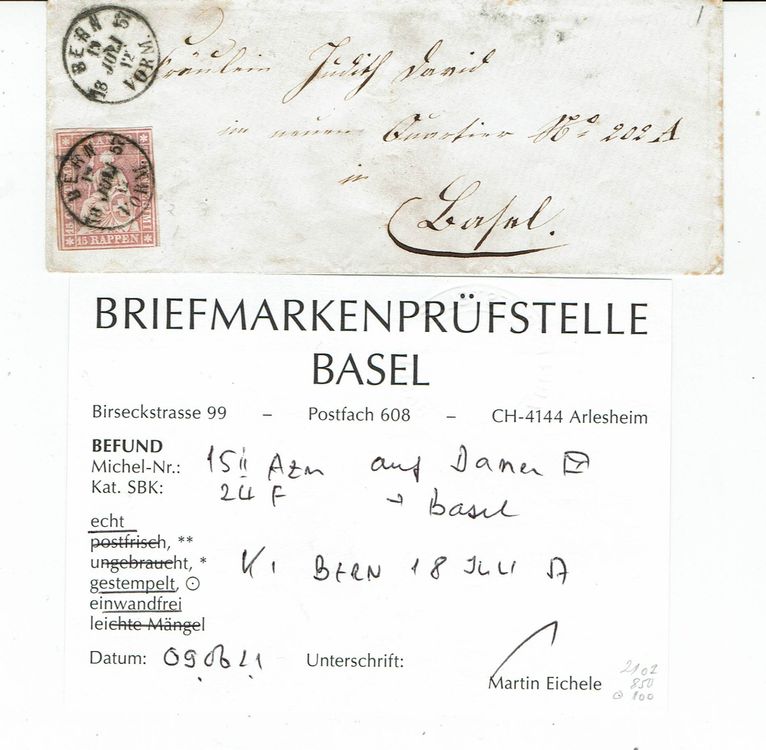 BERN 57
19
18 JULI 12
VORM.
1
Fräulein Judith David
im neuen Quartier No 202 A
in
Basel.
BERN 57
18 JULI
VORM
15 RAPPEN
BRIEFMARKENPRÜFSTELLE
BASEL
Birseckstrasse 99 – Postfach 608 – CH-4144 Arlesheim
BEFUND
Michel-Nr.: 15 II Azm auf Damen
Kat. SBK: 24 F → Basel
echt
postfrisch, **
ungebraucht, *
gestempelt, ⊙ K1 BERN 18 JULI 57
einwandfrei
leichte Mängel
Datum: 09.06.21 Unterschrift:
Martin Eichele
2102
850
100